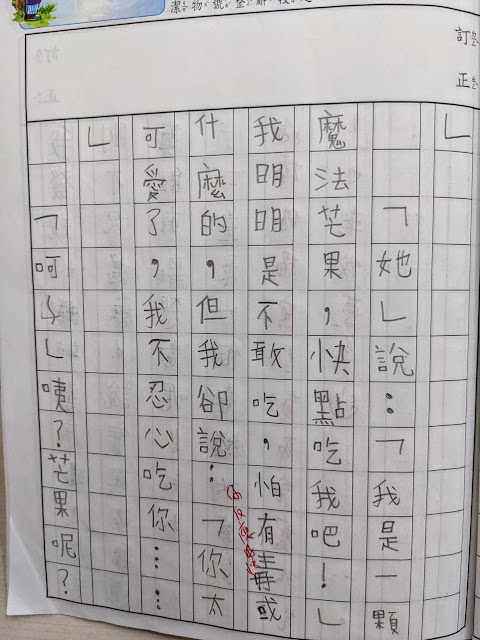 訂正
」
「她」說：「我是一顆
魔法芒果，快點吃我吧！」
我明明是不敢吃，怕有毒或
什麼的，但我卻說：「你太
可愛了，我不忍心吃你……
」
「呵」咦？芒果呢？